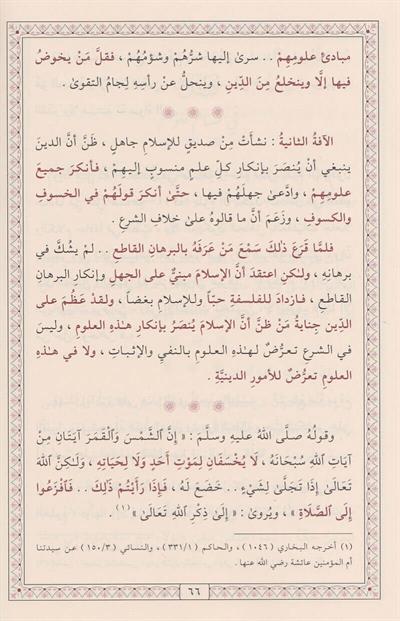 مبادئ علومِهِمْ . . سرىٰ إليها شرُّهُمْ وشؤمُهُمْ ، فقلَّ مَنْ يخوضُ
فيها إلَّا وينخلعُ مِنَ الدِّينِ ، وينحلُّ عنْ رأسِهِ لِجامُ التقوىٰ .
الآفةُ الثانيةُ : نشأتْ مِنْ صديقٍ للإسلامِ جاهلٍ ، ظَنَّ أنَّ الدينَ
ينبغي أنْ يُنصَرَ بإنكارِ كلِّ علمٍ منسوبٍ إليهِمْ ، فأنكرَ جميعَ
علومِهِمْ ، وادَّعىٰ جهلَهُمْ فيها ، حتَّىٰ أنكرَ قولَهُمْ في الخسوفِ
والكسوفِ ، وزعَمَ أنَّ ما قالوهُ علىٰ خلافِ الشرعِ .
فلمَّا قَرَعَ ذلكَ سَمْعَ مَنْ عَرَفَهُ بالبرهانِ القاطعِ . . لمْ يشُكَّ في
برهانِهِ ، ولـٰكنِ اعتقدَ أنَّ الإسلامَ مبنيٌّ على الجهلِ وإنكارِ البرهانِ
القاطعِ ، فازدادَ للفلسفةِ حبّاً وللإسلامِ بغضاً ، ولقدْ عَظُمَ على
الدِّينِ جِنايةُ مَنْ ظَنَّ أنَّ الإسلامَ يُنصَرُ بإنكارِ هـٰذهِ العلومِ ، وليسَ
في الشرعِ تعرُّضٌ لهـٰذهِ العلومِ بالنفيِ والإثباتِ ، ولا في هـٰذهِ
العلومِ تعرُّضٌ للأمورِ الدينيَّةِ .
وقولُهُ صلَّى اللهُ عليهِ وسلَّمَ : « إِنَّ ٱلشَّمْسَ وَٱلْقَمَرَ آيَتَانِ مِنْ
آيَاتِ ٱللهِ سُبْحَانَهُ ، لَا يُخْسَفَانِ لِمَوْتِ أَحَدٍ وَلَا لِحَيَاتِهِ ، وَلَـٰكِنَّ ٱللهَ
تَعَالَىٰ إِذَا تَجَلَّىٰ لِشَيْءٍ . . خَضَعَ لَهُ ، فَإِذَا رَأَيْتُمْ ذَلِكَ . . فَٱفْزَعُوا
إِلَى ٱلصَّلَاةِ » ، ويُروىٰ : « إِلَىٰ ذِكْرِ ٱللهِ تَعَالَىٰ »(١) .
(١) أخرجه البخاري ( ١٠٤٦ ) ، والحاكم ( ٣٣١/١ ) ، والنسائي ( ١٥٠/٣ ) عن سيدتنا
أم المؤمنين عائشة رضي الله عنها .
٦٦